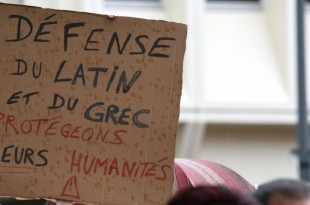 DÉFENSE
DU LATIN
ET DU GREC
PROTÉGEONS
HUMANITÉS